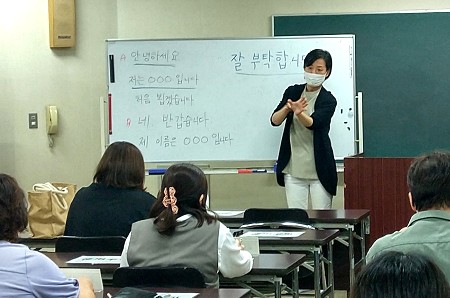 A 안녕하세요
저는 OOO 입니다
처음 뵙겠습니다
B 네. 반갑습니다
제 이름은 OOO 입니다
잘 부탁합니